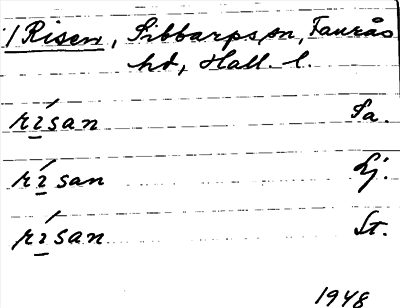 /Risen, Sibbarps sn, Faurås
hd, Hall. l.
rísan Sa.
rísan Lj.
rísan St.
1948